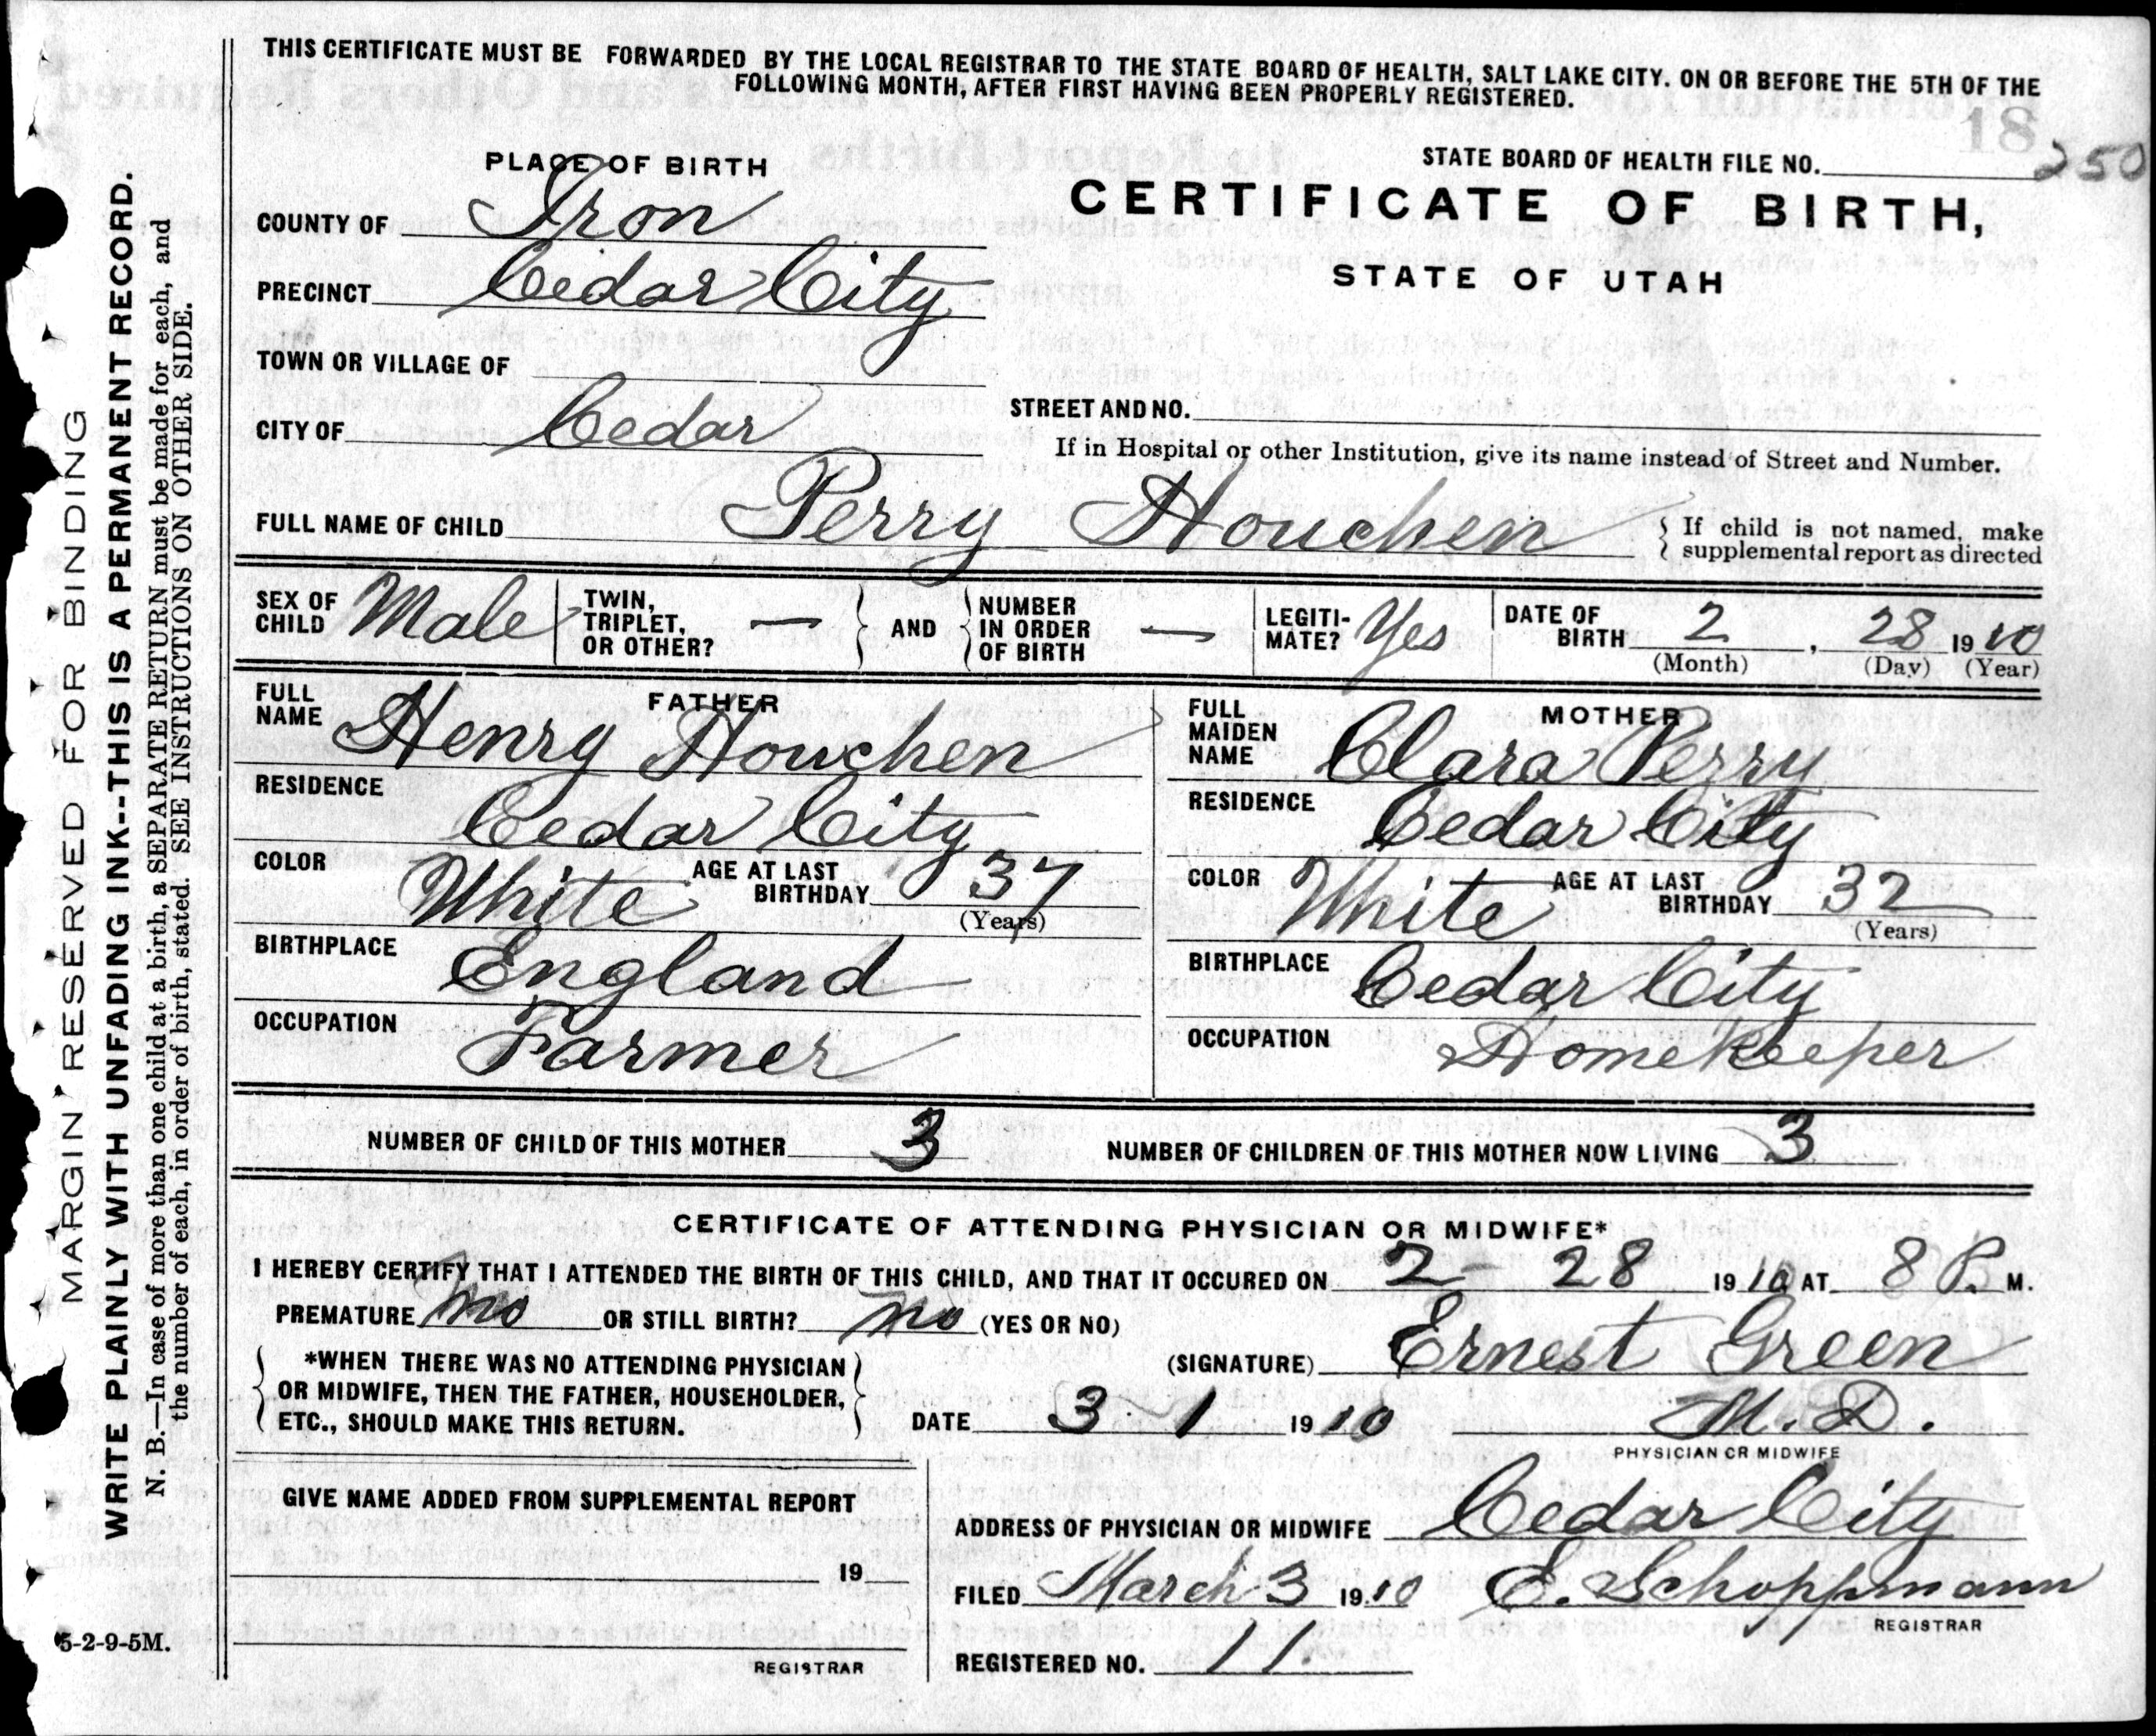 THIS CERTIFICATE MUST BE FORWARDED BY THE LOCAL REGISTRAR TO THE STATE BOARD OF HEALTH, SALT LAKE CITY. ON OR BEFORE THE 5TH OF THE
FOLLOWING MONTH, AFTER FIRST HAVING BEEN PROPERLY REGISTERED.
18
STATE BOARD OF HEALTH FILE NO. 250
PLACE OF BIRTH
CERTIFICATE OF BIRTH,
STATE OF UTAH
COUNTY OF Iron
PRECINCT Cedar City
TOWN OR VILLAGE OF
CITY OF Cedar
STREET AND NO.
If in Hospital or other Institution, give its name instead of Street and Number.
FULL NAME OF CHILD Perry Houchen
If child is not named, make
supplemental report as directed
SEX OF CHILD Male TWIN, TRIPLET, OR OTHER? — AND NUMBER IN ORDER OF BIRTH — LEGITI-MATE? Yes DATE OF BIRTH 2, 28 1910
(Month) (Day) (Year)
FATHER
FULL NAME Henry Houchen
RESIDENCE
Cedar City
COLOR White AGE AT LAST BIRTHDAY 37
(Years)
BIRTHPLACE England
OCCUPATION Farmer
MOTHER
FULL MAIDEN NAME Clara Perry
RESIDENCE Cedar City
COLOR White AGE AT LAST BIRTHDAY 32
(Years)
BIRTHPLACE Cedar City
OCCUPATION Homekeeper
NUMBER OF CHILD OF THIS MOTHER 3 NUMBER OF CHILDREN OF THIS MOTHER NOW LIVING 3
CERTIFICATE OF ATTENDING PHYSICIAN OR MIDWIFE*
I HEREBY CERTIFY THAT I ATTENDED THE BIRTH OF THIS CHILD, AND THAT IT OCCURED ON 2 - 28 1910 AT 8 P. M.
PREMATURE no OR STILL BIRTH? no (YES OR NO)
*WHEN THERE WAS NO ATTENDING PHYSICIAN
OR MIDWIFE, THEN THE FATHER, HOUSEHOLDER,
ETC., SHOULD MAKE THIS RETURN.
(SIGNATURE) Ernest Green
DATE 3 - 1 1910 M. D.
PHYSICIAN OR MIDWIFE
GIVE NAME ADDED FROM SUPPLEMENTAL REPORT
19
REGISTRAR
ADDRESS OF PHYSICIAN OR MIDWIFE Cedar City
FILED March 3 1910 E. Schoppmann
REGISTRAR
REGISTERED NO. 11.
5-2-9-5M.
MARGIN RESERVED FOR BINDING
WRITE PLAINLY WITH UNFADING INK--THIS IS A PERMANENT RECORD.
N. B.—In case of more than one child at a birth, a SEPARATE RETURN must be made for each, and
the number of each, in order of birth, stated. SEE INSTRUCTIONS ON OTHER SIDE.